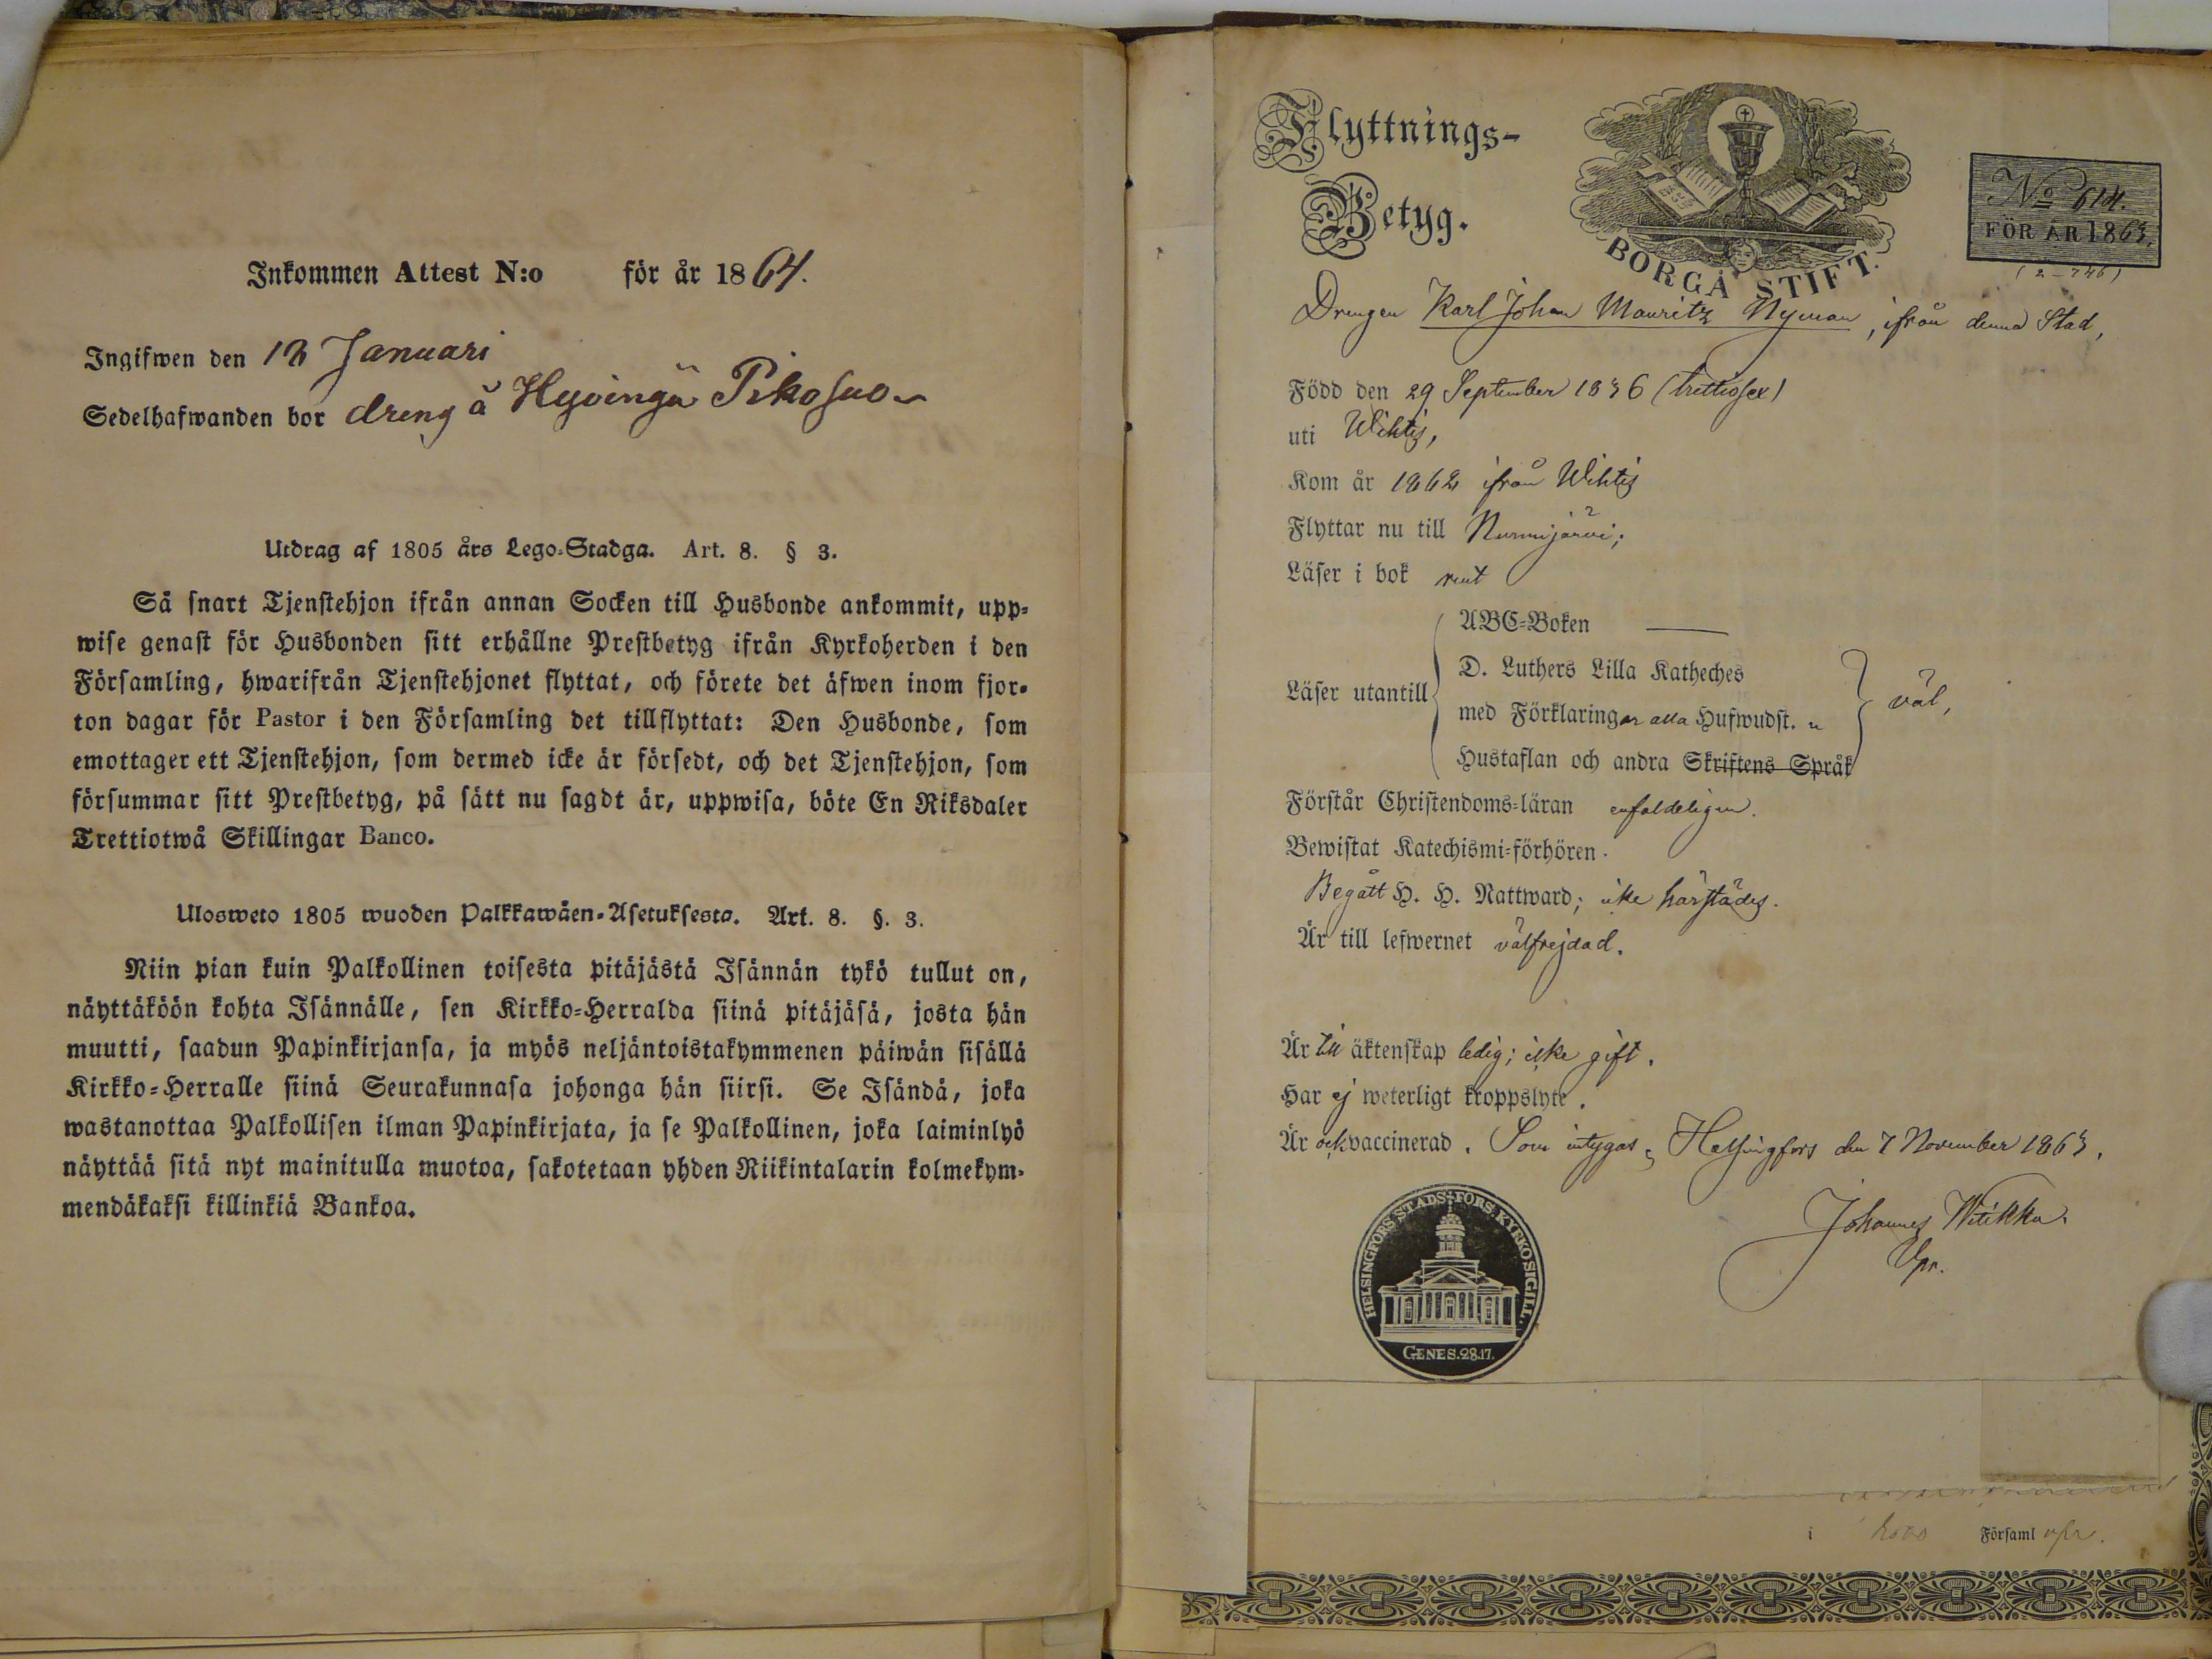 Inkommen Attest N:o för år 1864.
Ingifwen den 12 Januari
Sedelhafwanden bor dreng å Hyvingä
Utdrag af 1805 års Lego-Stadga. Art. 8. § 3.
Så snart Tjenstehjon ifrån annan Socken till Husbonde ankommit, upp-
wise genast för Husbonden sitt erhållne Prestbetyg ifrån Kyrkoherden i den
Församling, hwarifrån Tjenstehjonet flyttat, och förete det äfwen inom fjor-
ton dagar för Pastor i den Församling det tillflyttat: Den Husbonde, som
emottager ett Tjenstehjon, som dermed icke är försedt, och det Tjenstehjon, som
försummar sitt Prestbetyg, på sätt nu sagdt är, uppwisa, böte En Riksdaler
Trettiotwå Skillingar Banco.
Ulosweto 1805 wuoden Palkkawäen-Asetuksesta. Art. 8. §. 3.
Niin pian kuin Palkollinen toisesta pitäjästä Isännän tykö tullut on,
näyttäköön kohta Isännälle, sen Kirkko-Herralda siinä pitäjäsä, josta hän
muutti, saadun Papinkirjansa, ja myös neljäntoistakymmenen päiwän sisällä
Kirkko-Herralle siinä Seurakunnasa johonga hän siirsi. Se Isändä, joka
wastanottaa Palkollisen ilman Papinkirjata, ja se Palkollinen, joka laiminlyö
näyttää sitä nyt mainitulla muotoa, sakotetaan yhden Riikintalarin kolmekym-
mendäkaksi killinkiä Bankoa.
Flyttnings-
Betyg.
BORGÅ STIFT.
No 614.
FÖR ÅR 1863.
(2-746)
Drengen Karl Johan Mauritz Nyman, ifrån denna Stad,
Född den 29 September 1836 (trettiosex)
uti Wihtis,
Kom år 1862 ifrån Wihtis
Flyttar nu till Nurmijärvi;
Läser i bok rent
ABC-Boken
D. Luthers Lilla Katheches
Läser utantill
med Förklaringar alla Hufwudst. u
väl,
Hustaflan och andra Skriftens Språk
Förstår Christendoms-läran enfaldeligen.
Bewistat Katechismi-förhören.
Begått H. H. Nattward; icke härstädes.
Är till lefwernet välfrejdad.
Är till äktenskap ledig; icke gift.
Har ej weterligt kroppslyte.
Är ock vaccinerad. Som intygas, Helsingfors den 7 November 1863.
Johannes Witikka.
Vpr.
HELSINGFORS STADS-FÖRS. KYRKOSIGILL.
GENES.28.17.
i Församl